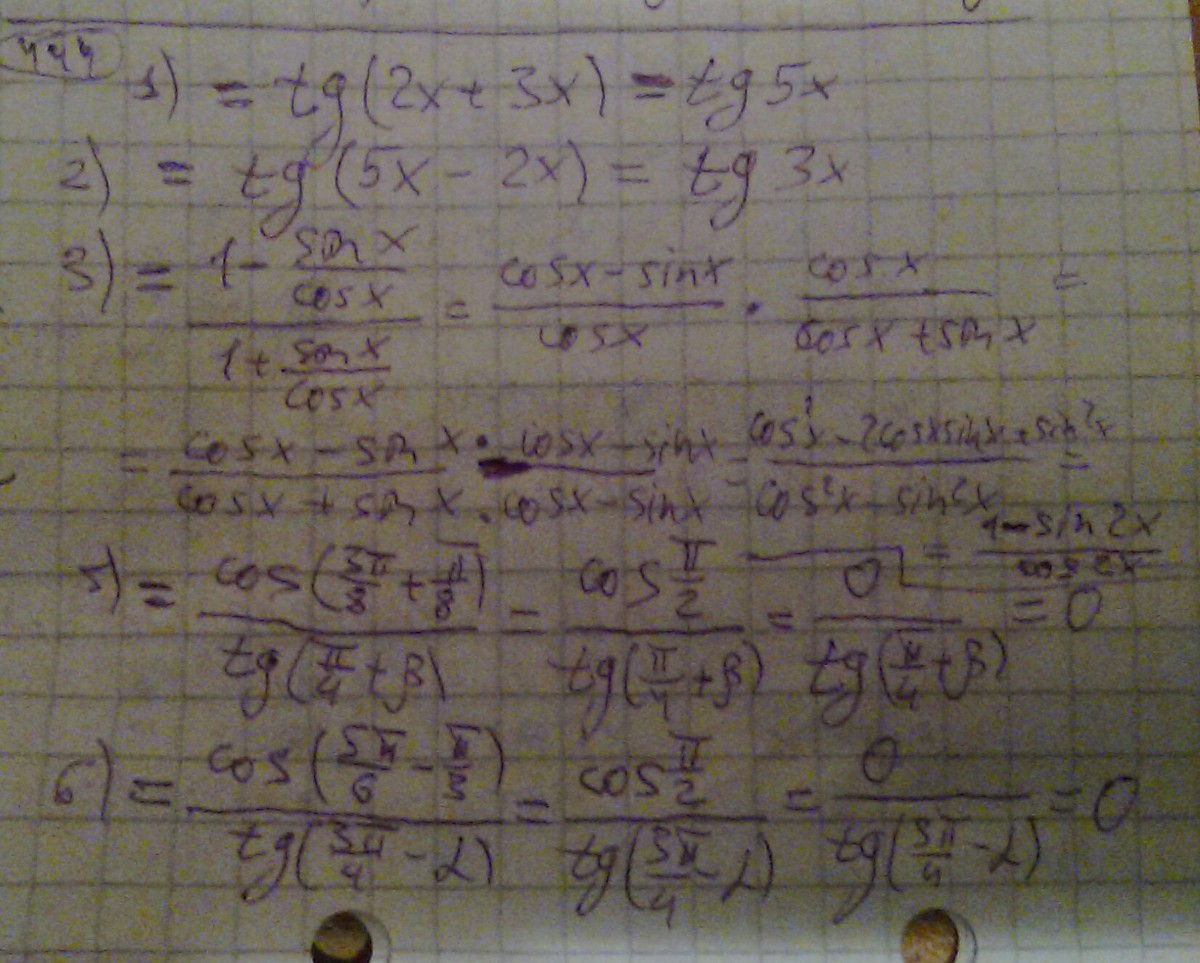 444
1) = tg(2x + 3x) = tg 5x
2) = tg (5x - 2x) = tg 3x
3) = (1 - sin x / cos x) / (1 + sin x / cos x) = (cosx - sinx) / cosx · cosx / (cosx + sinx) =
= (cosx - sinx) / (cosx + sinx) · (cosx - sinx) / (cosx - sinx) = (cos²x - 2cosxsinx + sin²x) / (cos²x - sin²x) =
= (1 - sin2x) / cos2x
5) = cos(3π/8 + π/8) / tg(π/4 + β) = cos π/2 / tg(π/4 + β) = 0 / tg(π/4 + β) = 0
6) = cos(5π/6 - π/3) / tg(3π/4 - α) = cos π/2 / tg(3π/4 - α) = 0 / tg(3π/4 - α) = 0